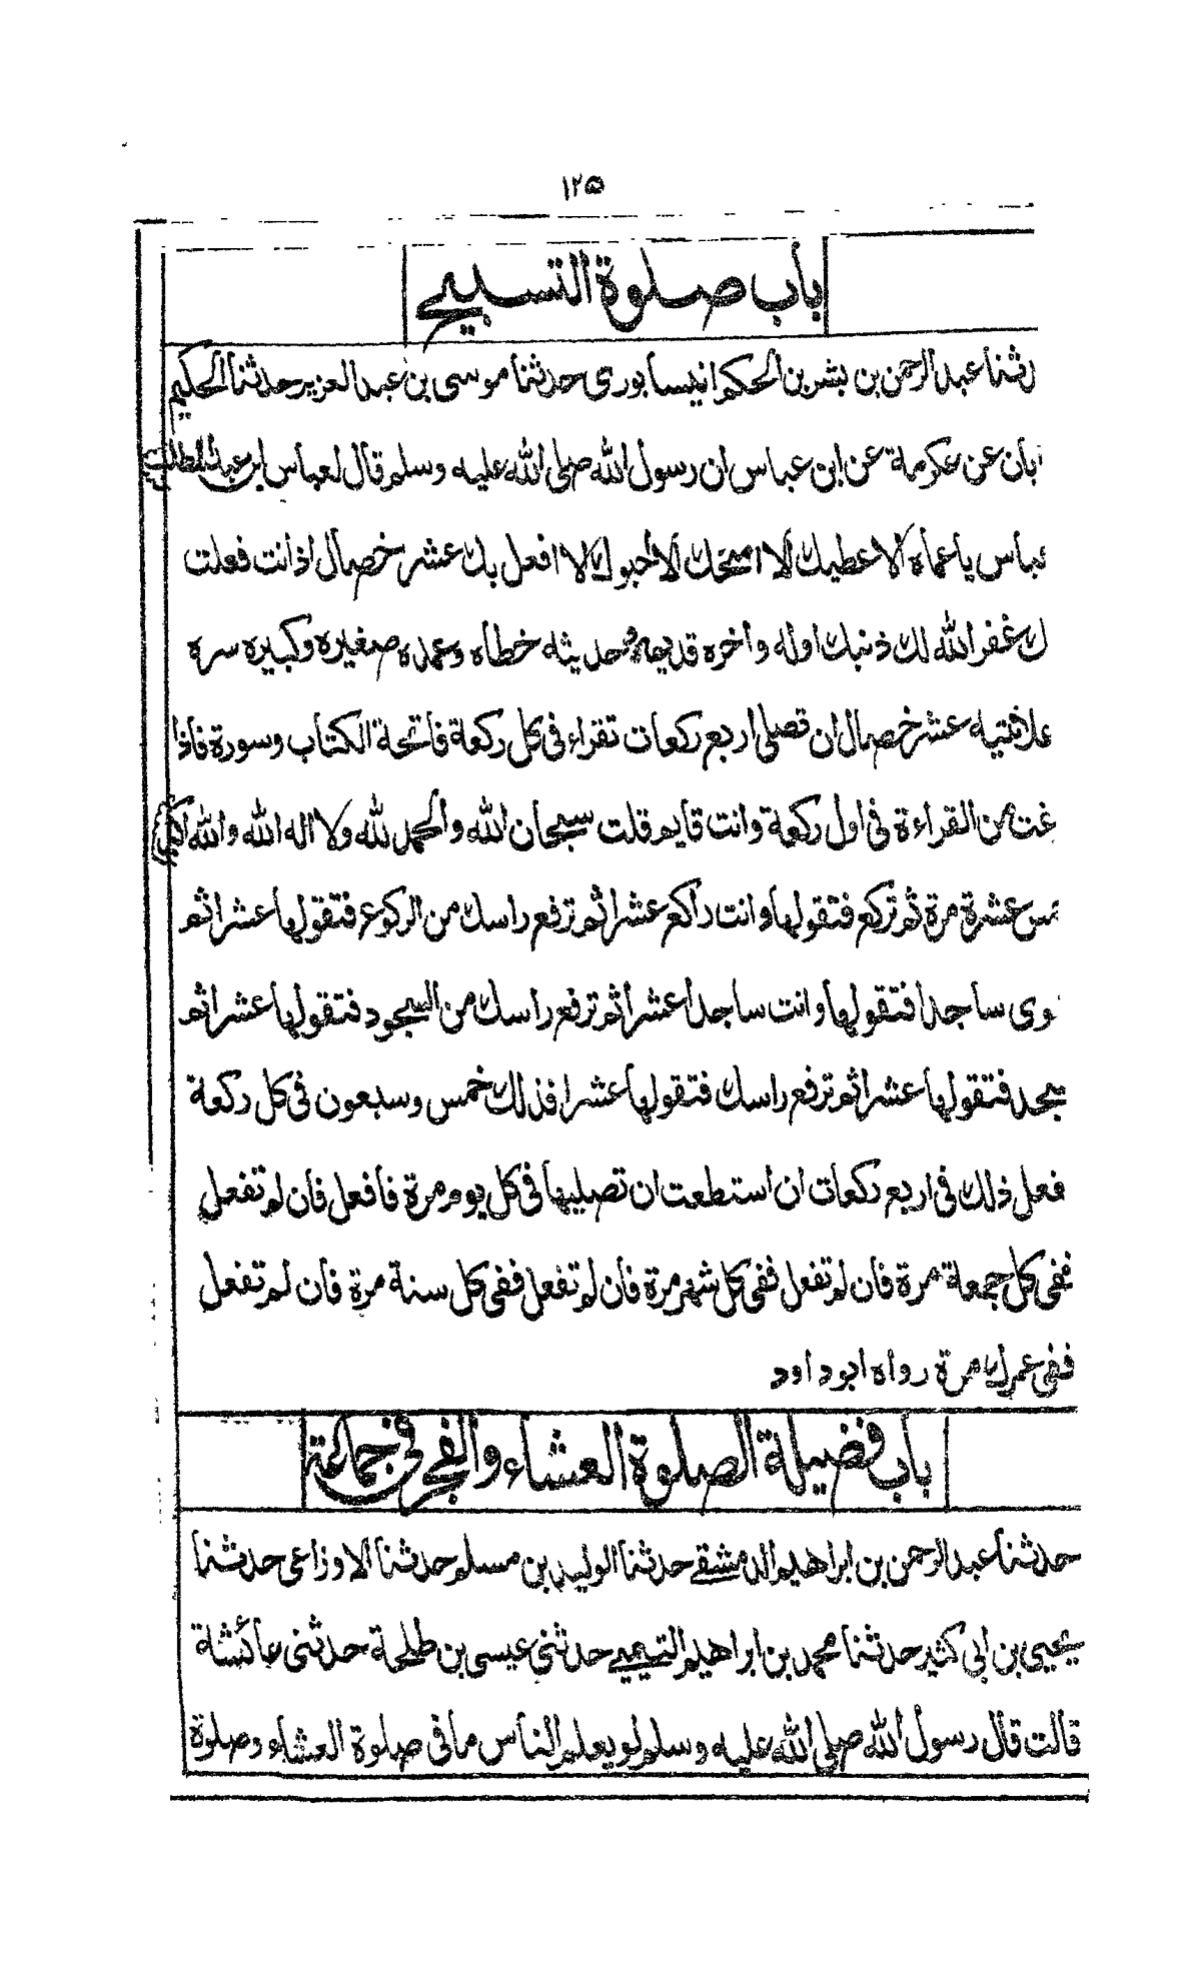 ١٢٥
باب صلوة التسبيح
دثنا عبد الرحمن بن بشر بن الحكم انيسابوري حدثنا موسى بن عبد العزيز حدثنا الحكيم
بان عن عكرمة عن ابن عباس ان رسول الله صلى الله عليه وسلم قال لعباس ابن عبد المطلب
عباس يا عماه الا اعطيك الا امنحك الا احبوك الا افعل بك عشر خصال اذا انت فعلت
ك غفر الله لك ذنبك اوله واخره قديمه وحديثه خطاه وعمده صغيره وكبيره سره
علانيته عشر خصال ان تصلى اربع ركعات تقراء فى كل ركعة فاتحة الكتاب وسورة فاذا
غت من القراءة فى اول ركعة وانت قايم قلت سبحان الله والحمد لله ولا اله الله والله اكبر
مس عشرة مرة ثم تركع فتقولها وانت راكع عشرا ثم ترفع راسك من الركوع فتقولها عشرا ثم
وى ساجدا فتقولها وانت ساجدا عشرا ثم ترفع راسك من السجود فتقولها عشرا ثم
سجد فتقولها عشرا ثم ترفع راسك فتقولها عشرا فذلك خمس وسبعون فى كل ركعة
فعل ذلك فى اربع ركعات ان استطعت ان تصليها فى كل يوم مرة فافعل فان لم تفعل
ففى كل جمعة مرة فان لم تفعل ففى كل شهر مرة فان لم تفعل ففى كل سنة مرة فان لم تفعل
ففى عمرك مرة رواه ابو داود
باب فضيلة الصلوة العشاء والفجر فى جماعة
حدثنا عبد الرحمن بن ابراهيم الدمشقے حدثنا الوليد بن مسلم حدثنا الاوزاعى حدثنا
يحيى بن ابى كثير حدثنا محمد بن ابراهيم التيمے حدثنى عيسى بن طلحة حدثنى عائشة
قالت قال رسول الله صلى الله عليه وسلم لو يعلم الناس ما فى صلوة العشاء وصلوة